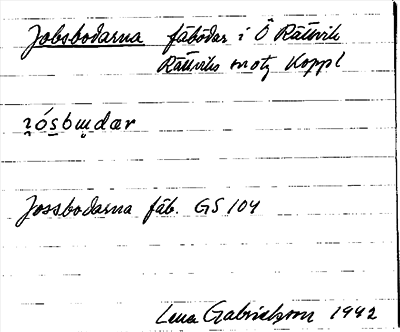 Jobsbodarna fäbodar i Ö Rättvik
Rättviks sn otz Koppl
ʒósbɯdær
Jossbodarna fäb. GS 104
Lena Gabrielsson 1942